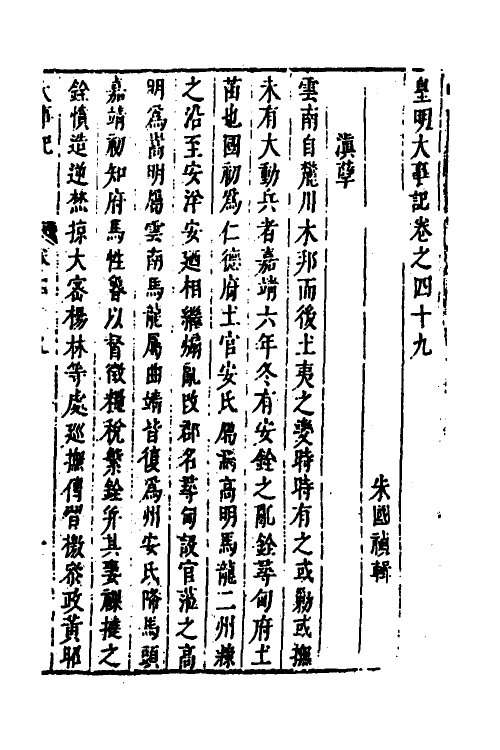 皇明大事記卷之四十九
朱國禎輯
滇孽
雲南自麓川木邦而後土夷之變時時有之或勦或撫
未有大動兵者嘉靖六年冬有安銓之亂銓尋甸府土
苗也國初爲仁德府土官安氏爲嵩明馬龍二州糠
之沿至安洋安廼相繼煽亂改郡名尋甸設官蒞之高
明爲嵩明屬雲南馬龍屬曲靖皆復爲州安氏降馬頭
嘉靖初知府馬性魯以督徵糧稅繫銓并其妻裸撻之
銓憤造逆焚掠大寨楊林等處巡撫傅習檄參政黃昭
大事記